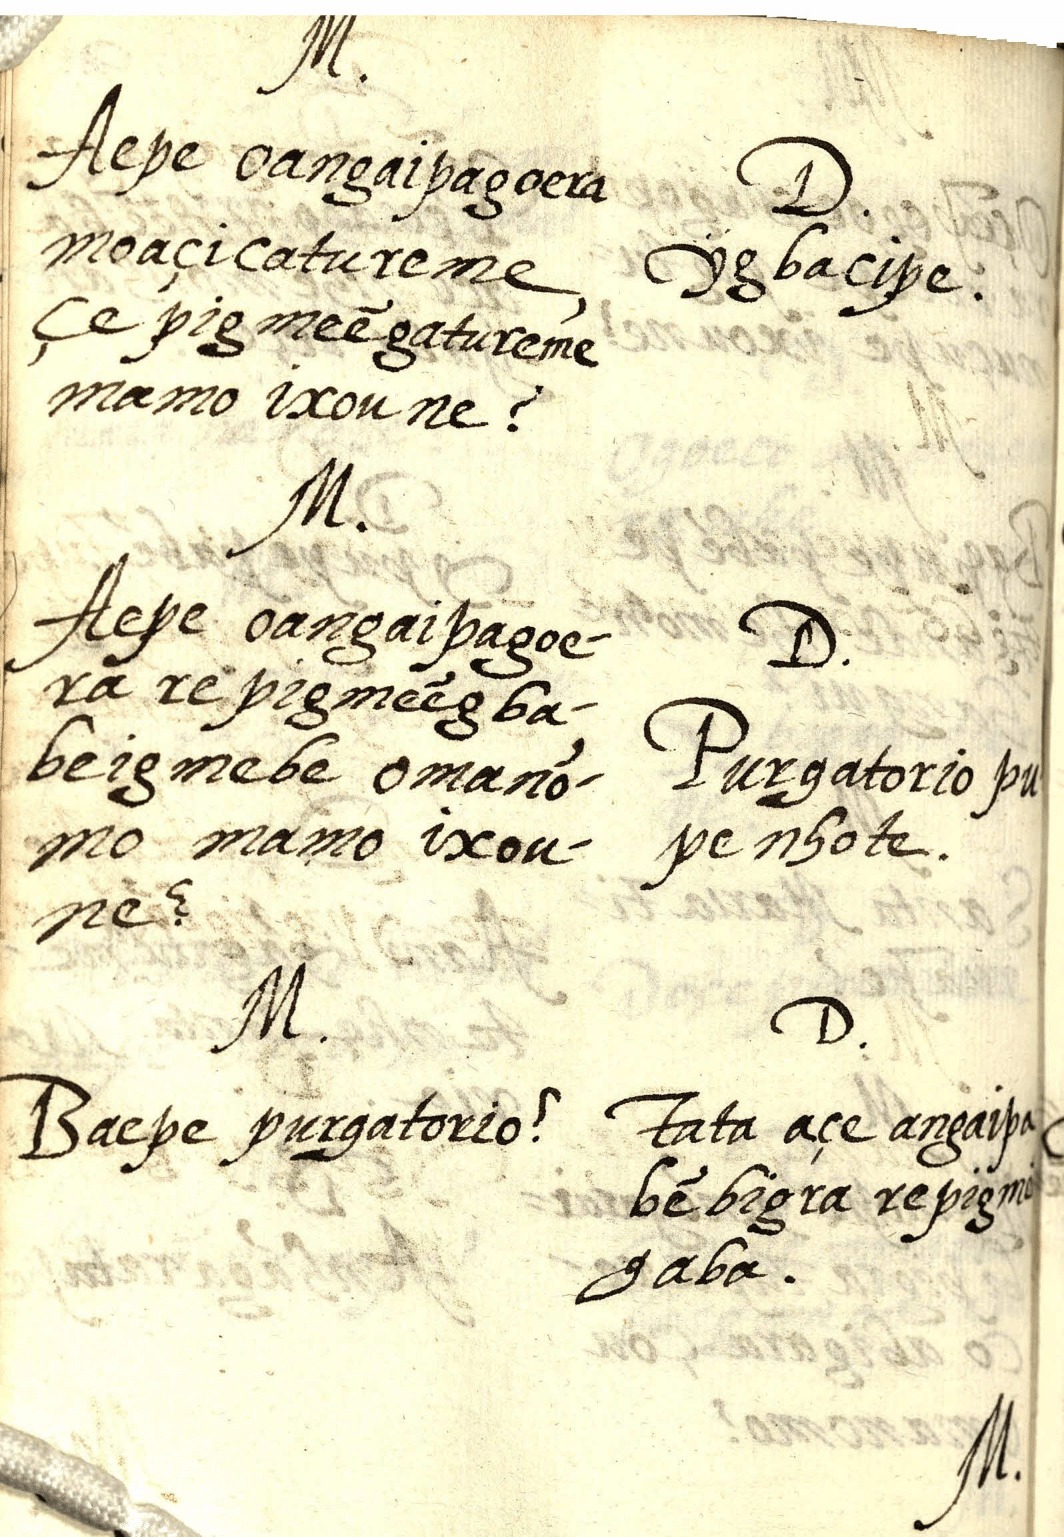 M.
Aepe oangaipagoera
moaçicatureme,
çe pigmeẽgatureme
mamo ixou ne?
D.
Ÿgbacipe.
M.
Aepe oangaipagoe-
ra repigmeẽgba-
beigmebe omano-
mo mamo ixou-
ne?
D.
Purgatorio pu
pe nhote.
M.
Baepe purgatorio?
D.
Tata açe angaipa
bẽ bïgra repigmi
gaba.
M.